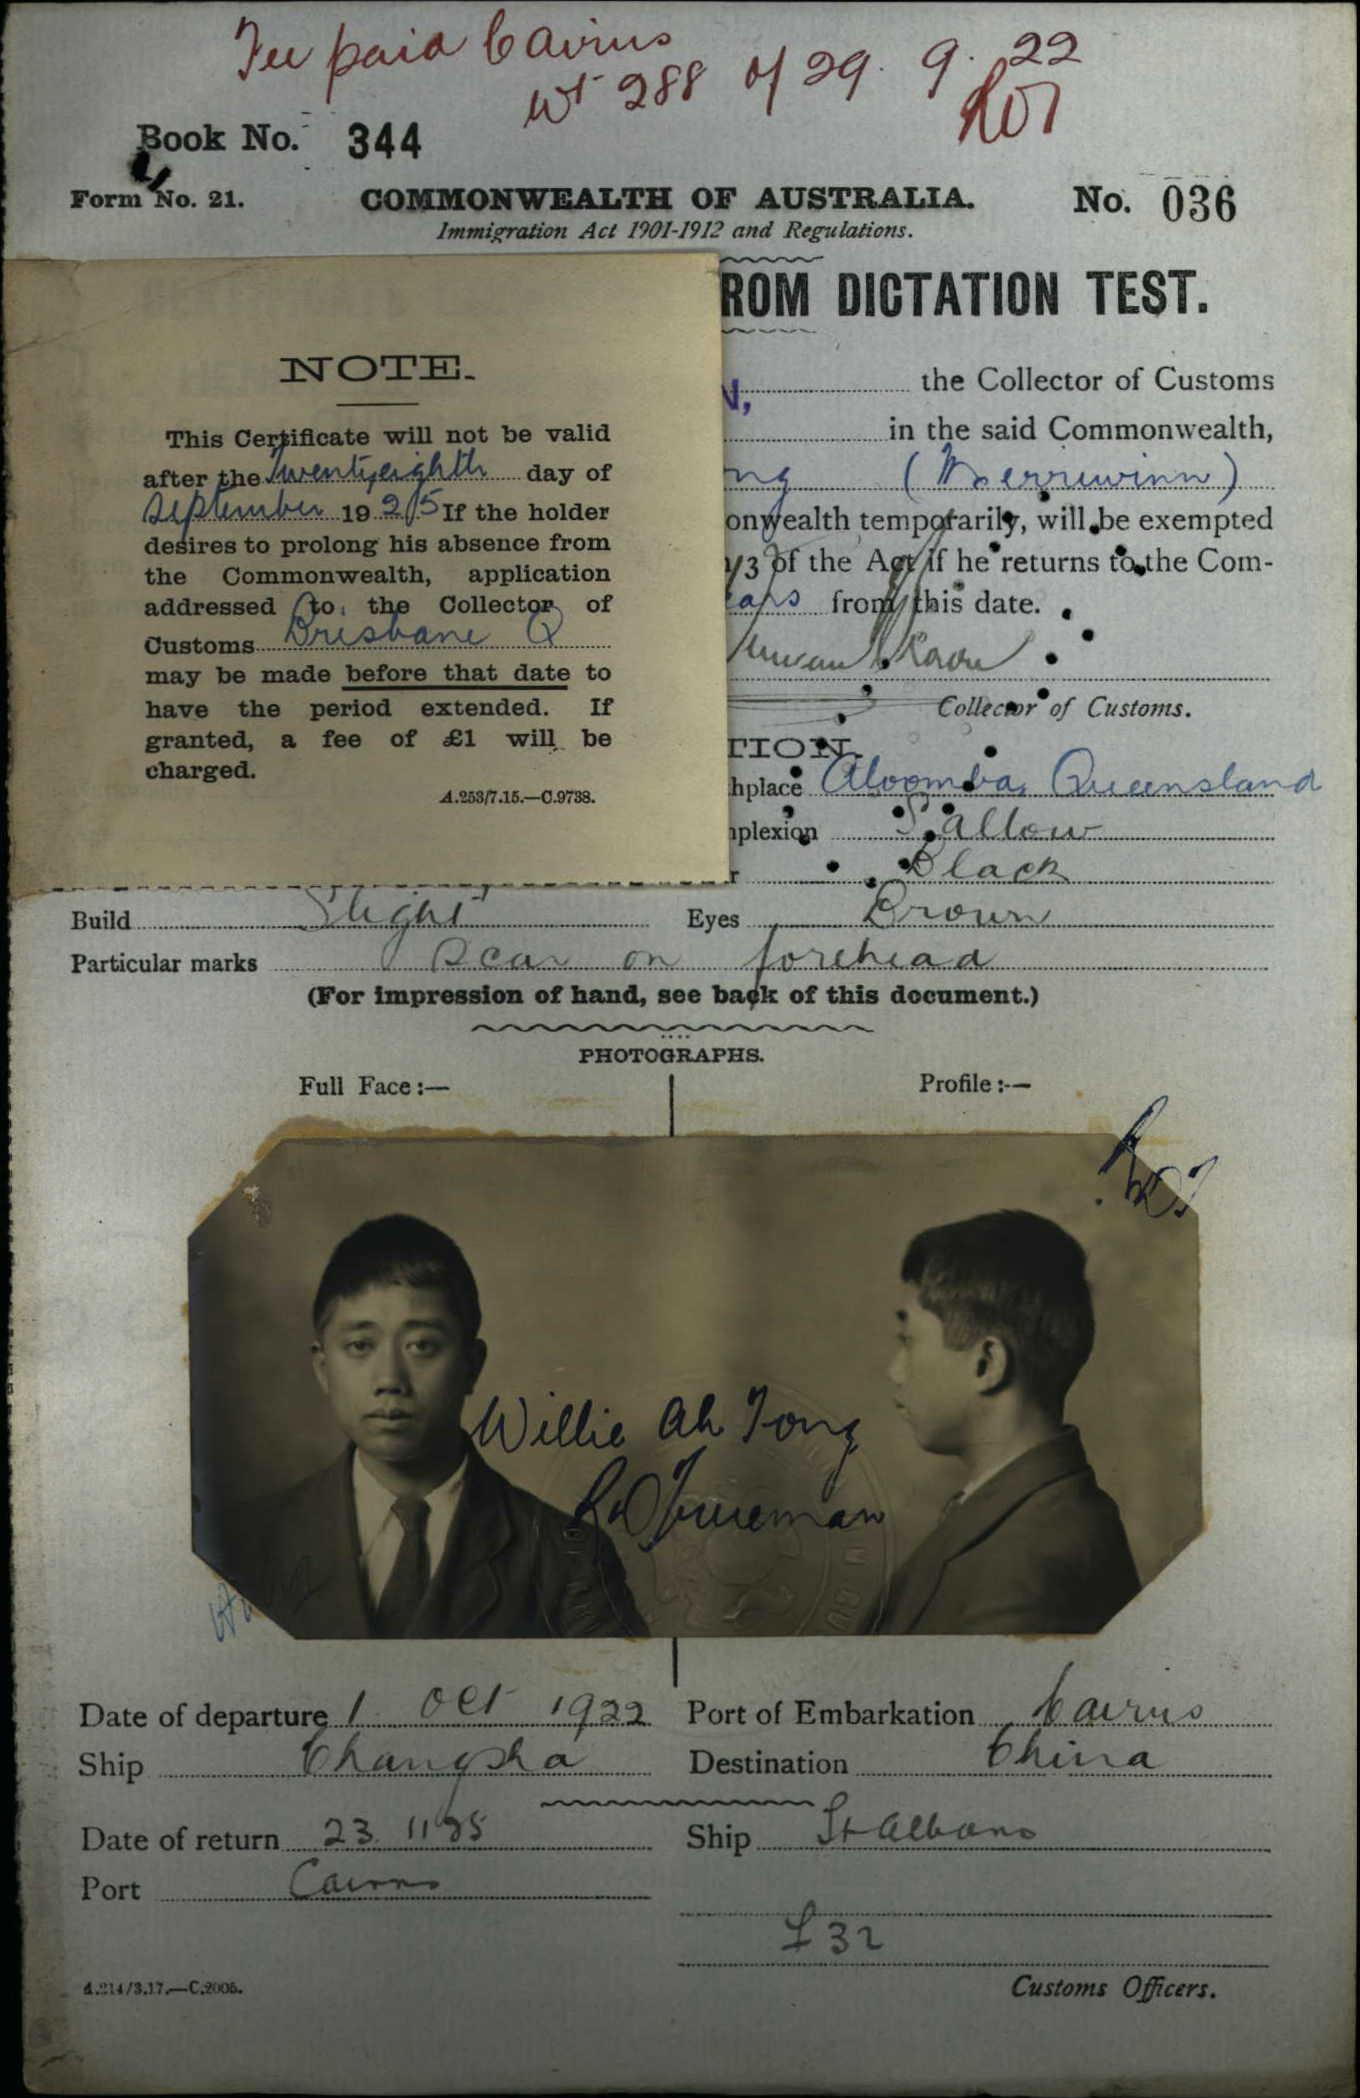 Fee paid Cairns
wt 288 of 29. 9. 22
Book No. 344
Form No. 21. COMMONWEALTH OF AUSTRALIA. No. 036
Immigration Act 1901-1912 and Regulations.
ROM DICTATION TEST.
the Collector of Customs
in the said Commonwealth,
ng (Merriwinn)
onwealth temporarily, will be exempted
of the Act if he returns to the Com-
from this date.
Collector of Customs.
TION.
hplace Aloomba, Queensland
mplexion Sallow
r Black
NOTE.
This Certificate will not be valid
after the Twentyeighth day of
September 1925 If the holder
desires to prolong his absence from
the Commonwealth, application
addressed to the Collector of
Customs Brisbane Q
may be made before that date to
have the period extended. If
granted, a fee of £1 will be
charged.
A.253/7.15.—C.9738.
Build Slight Eyes Brown
Particular marks Scar on forehead
(For impression of hand, see back of this document.)
PHOTOGRAPHS.
Full Face :— Profile :—
Willie Ah Fong
Date of departure 1 Oct 1922 Port of Embarkation Cairns
Ship Changsha Destination China
Date of return 23 11 25 Ship St Albans
Port Cairns
£32
A.214/3.17.—C.2005. Customs Officers.